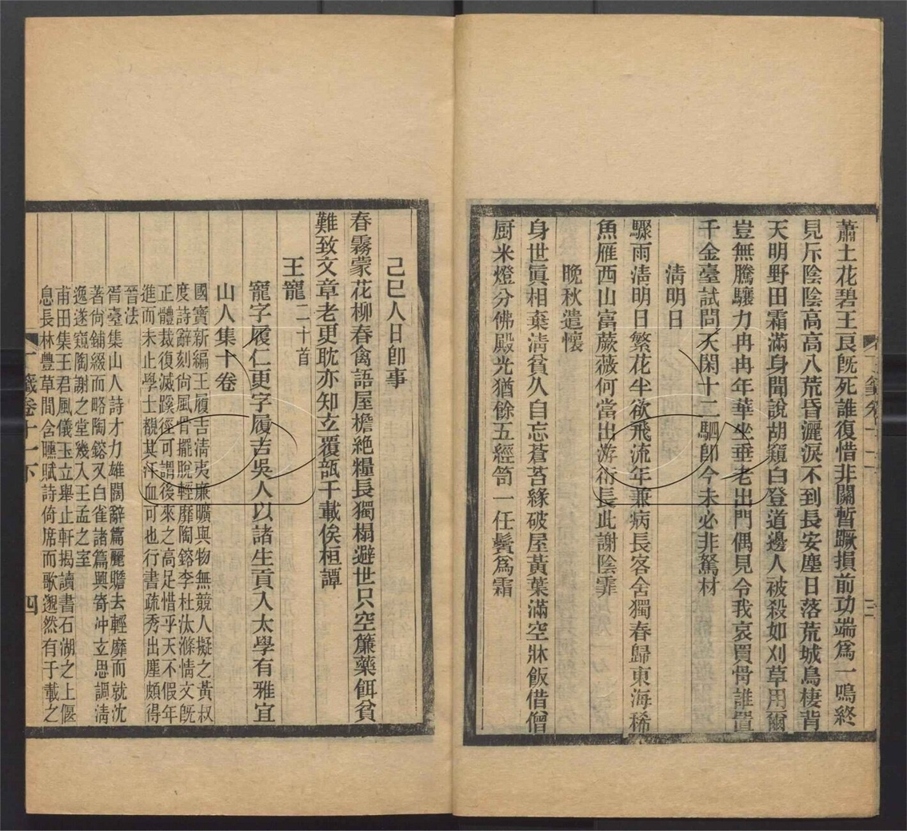 蕭土花碧王良既死誰復惜非關暫蹶損前功端爲一鳴終
見斥陰陰高高八荒昏灑淚不到長安塵日落荒城烏棲背
天明野田霜滿身聞說胡窺白登道邊人被殺如刈草用爾
豈無騰驤力冉冉年華坐垂老出門偶見令我哀買骨誰置
千金臺試問天閑十二駟卽今未必非駑材
清明日
驟雨清明日繁花半欲飛流年兼病長客舍獨春歸東海稀
魚雁西山富蕨薇何當出游衍長此謝陰霏
晚秋遣懷
身世眞相棄清貧久自忘蒼苔緣破屋黃葉滿空牀飯借僧
厨米燈分佛殿光猶餘五經笥一任鬢爲霜
己巳人日卽事
春霧蒙花柳春禽語屋檐絶糧長獨榻避世只空簾藥餌貧
難致文章老更耽亦知立覆瓿千載俟桓譚
王寵二十首
寵字履仁更字履吉吳人以諸生貢入太學有雅宜
山人集十卷
國寶新編王履吉清夷廉曠與物無競人擬之黃叔
度詩辭刻尚風骨擺脫輕靡陶鎔李杜汰滌情文旣
正體裁復滅蹊徑可謂後來之高足惜乎天不假年
進而未止學士襯其汗血可也行書疏秀出塵頗得
晉法
胥臺集山人詩才力雄闊辭篇麗贍去輕靡而就沈
著尚鋪綴而略陶鎔及白雀諸篇興寄冲立思調清
逸遂窺陶謝之堂幾入王孟之室
甫田集王君風儀玉立舉止軒揭讀書石湖之上偃
息長林豐草間含醺賦詩倚席而歌邈然有千載之
丁籤卷十一下
四